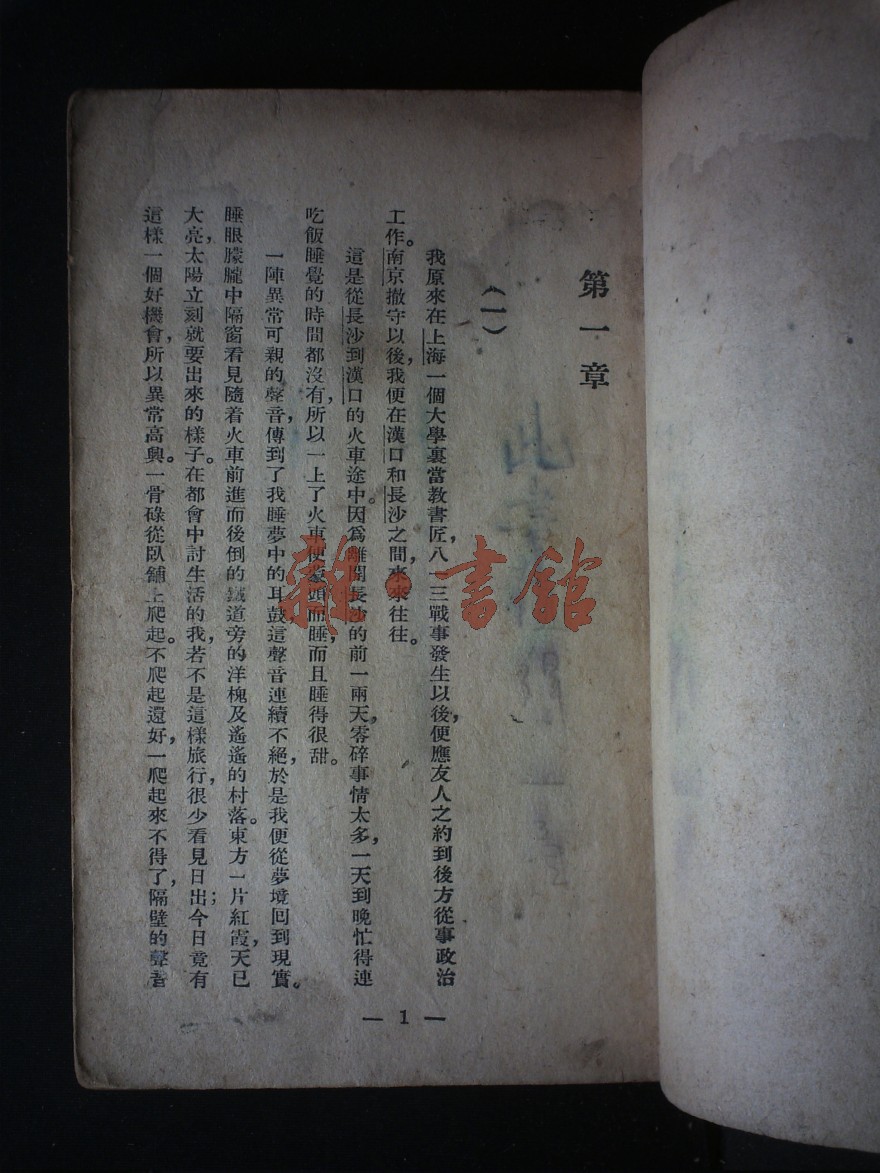 第一章
(一)
我原來在上海一個大學裏當敎書匠,八一三戰事發生以後,便應友人之約到後方從事政治
工作。南京撤守以後,我便在漢口和長沙之間,來來往往。
這是從長沙到漢口的火車途中。因爲離開長沙的前一兩天,零碎事情太多,一天到晚忙得連
吃飯睡覺的時間都沒有,所以一上了火車便蒙頭而睡,而且睡得很甜。
一陣異常可親的聲音,傳到了我睡夢中的耳鼓,這聲音連續不絕,於是我便從夢境回到現實。
睡眼朦朧中隔窗看見隨着火車前進而後倒的鐵道旁的洋槐及遙遙的村落。東方一片紅霞,天已
大亮,太陽立刻就要出來的樣子。在都會中討生活的我,若不是這樣旅行,很少看見日出;今日竟有
這樣一個好機會,所以異常高興。一骨碌從臥舖上爬起。不爬起還好,一爬起來不得了,隔壁的聲音
— 1 —
雜·書館